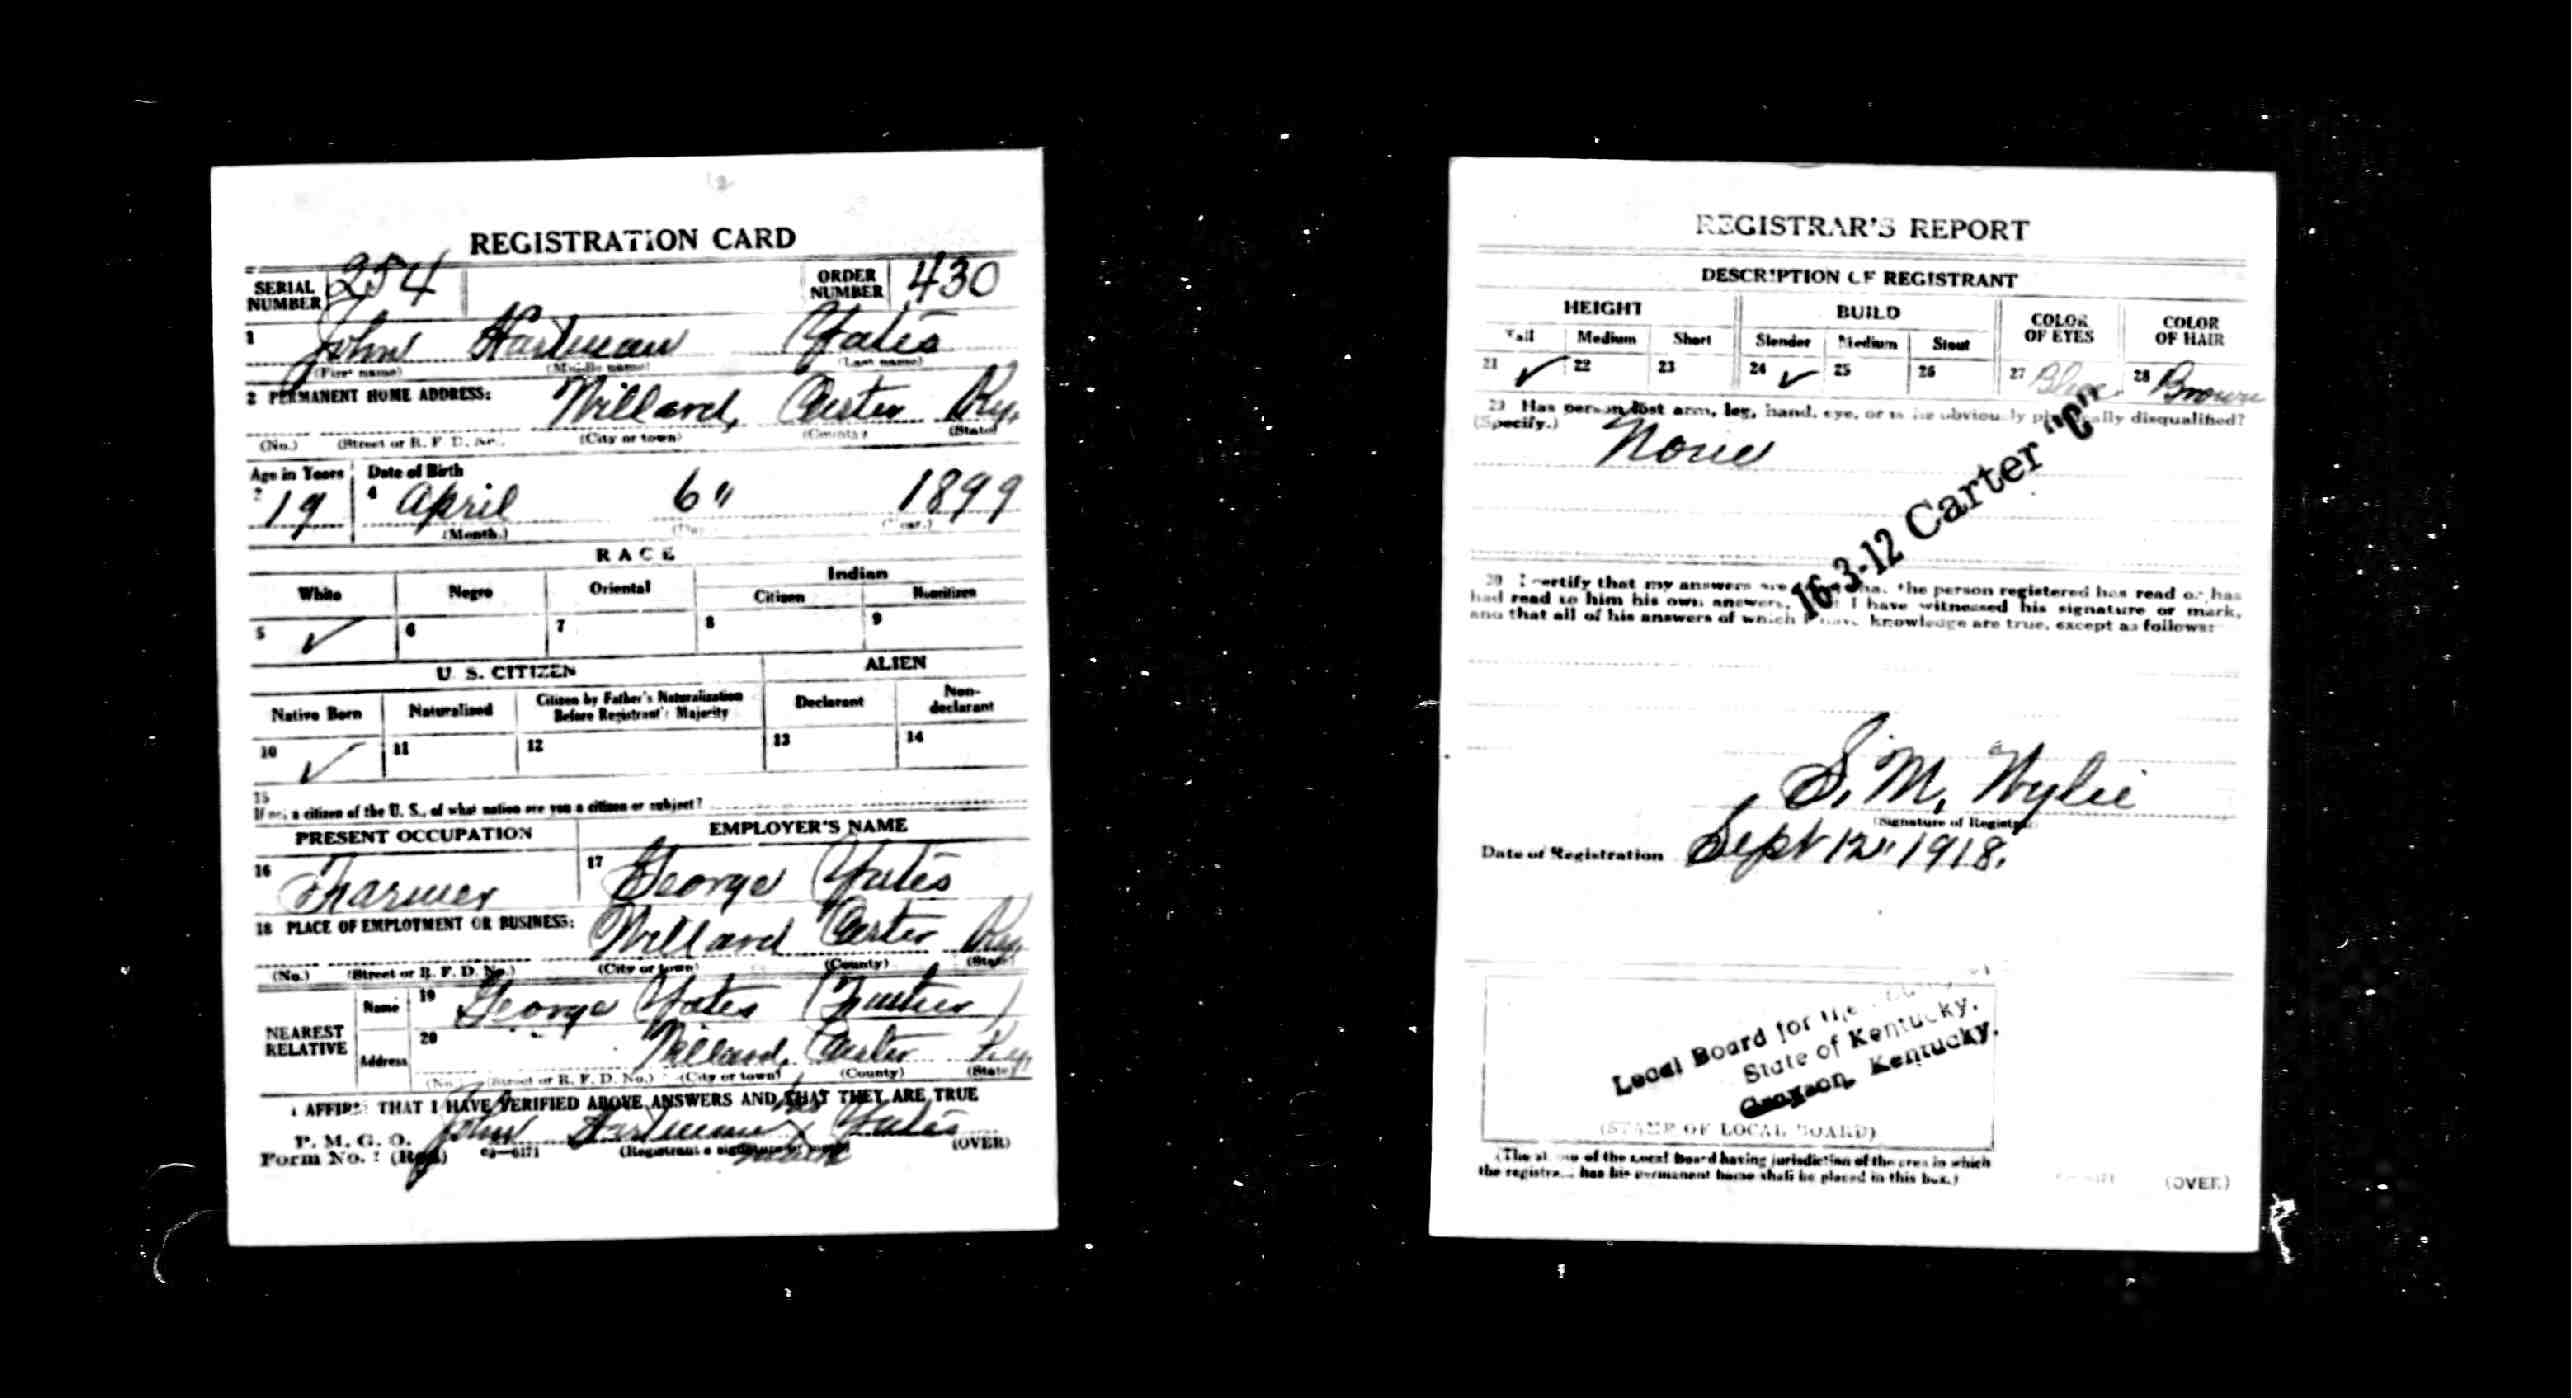 REGISTRATION CARD
SERIAL NUMBER 254 ORDER NUMBER 430
1 John Hartman Yates
(First name) (Middle name) (Last name)
2 PERMANENT HOME ADDRESS: Willard, Carter Ky.
(No.) (Street or R. F. D. No.) (City or town) (County) (State)
Age in Years Date of Birth
19 4 April 6" 1899
(Month.) (Day.) (Year.)
RACE
White Negro Oriental Indian
Citizen Noncitizen
5 ✓ 6 7 8 9
U. S. CITIZEN ALIEN
Native Born Naturalized Citizen by Father's Naturalization Before Registrant's Majority Declarant Non-declarant
10 ✓ 11 12 13 14
15
If not a citizen of the U. S., of what nation are you a citizen or subject?
PRESENT OCCUPATION EMPLOYER'S NAME
16 Farmer 17 George Yates
18 PLACE OF EMPLOYMENT OR BUSINESS: Willard Carter Ky.
(No.) (Street or R. F. D. No.) (City or town) (County) (State)
NEAREST RELATIVE Name 19 George Yates (Father)
Address 20 Willard, Carter Ky.
(No.) (Street or R. F. D. No.) (City or town) (County) (State)
I AFFIRM THAT I HAVE VERIFIED ABOVE ANSWERS AND THAT THEY ARE TRUE
John Hartman his x mark Yates
P. M. G. O.
Form No. 1 (Red) (Registrant's signature or mark) (OVER)
REGISTRAR'S REPORT
DESCRIPTION OF REGISTRANT
HEIGHT BUILD COLOR OF EYES COLOR OF HAIR
Tall Medium Short Slender Medium Stout
21 ✓ 22 23 24 ✓ 25 26 27 Blue 28 Brown
29 Has person lost arm, leg, hand, eye, or is he obviously physically disqualified?
(Specify.) None
16-3-12 Carter "C"
30 I certify that my answers are true, that the person registered has read or has
had read to him his own answers, that I have witnessed his signature or mark,
and that all of his answers of which I have knowledge are true, except as follows:
S. M. Wylie
(Signature of Registrar)
Date of Registration Sept 12" 1918.
Local Board for the
State of Kentucky.
Grayson, Kentucky.
(STAMP OF LOCAL BOARD)
(The stamp of the Local Board having jurisdiction of the area in which
the registrant has his permanent home shall be placed in this box.)
(OVER)